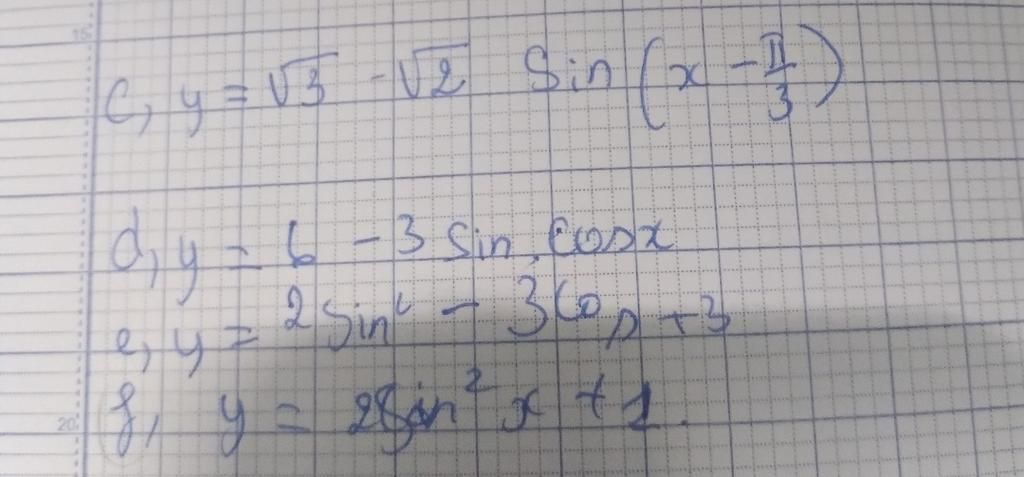 15
c, y = √3 - √2 Sin (x - π/3)
d, y = 6 - 3 Sin. cosx
e, y = 2 Sin² - 3 Cos + 3
f, y = 2 Sin² x + 1.
20